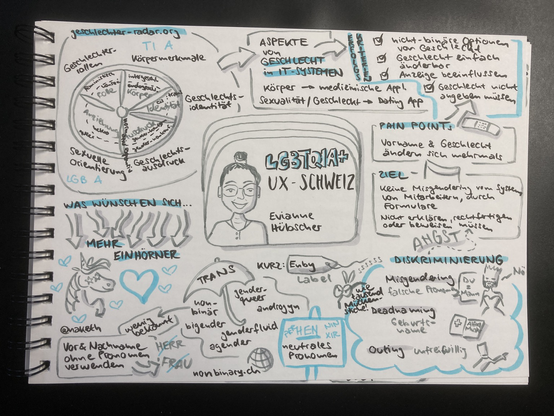 geschlechter-radar.org
TI A
Geschlechts-
rollen
Körpermerkmale
Geschlechts-
identität
Geschlechts-
ausdruck
Sexuelle
Orientierung
LGB A
ASPEKTE
von
GESCHLECHT
in IT-SYSTEMEN
Körper → medizinische App!
Sexualität/Geschlecht → Dating App
nicht-binäre Optionen
von Geschlecht
Geschlecht einfach
änderbar
Anzeige beeinflussen
Geschlecht nicht
angeben müssen
LGBTQIA+
UX-SCHWEIZ
Evianne
Hübscher
PAIN POINT:
Vorname & Geschlecht
ändern sich mehrmals
ZIEL
Keine Misgendering von System,
von Mitarbeitern, durch
Formulare
Nicht erklären, rechtfertigen
oder beweisen müssen
ANGST
WAS WÜNSCHEN SICH...
MEHR
EINHÖRNER
@naureth
Vor & Nachname
ohne Pronomen
verwenden
HERR
FRAU
wenig
bekannt
TRANS
non-
binär
gender-
queer
androgyn
bigender
genderfluid
agender
nonbinary.ch
KURZ: Enby
Label
HEN
NIN
XIR
neutrales
Pronomen
DISKRIMINIERUNG
Misgendering
falsche Pronomen
Deadnaming
Geburts-
name
Outing unfreiwillig